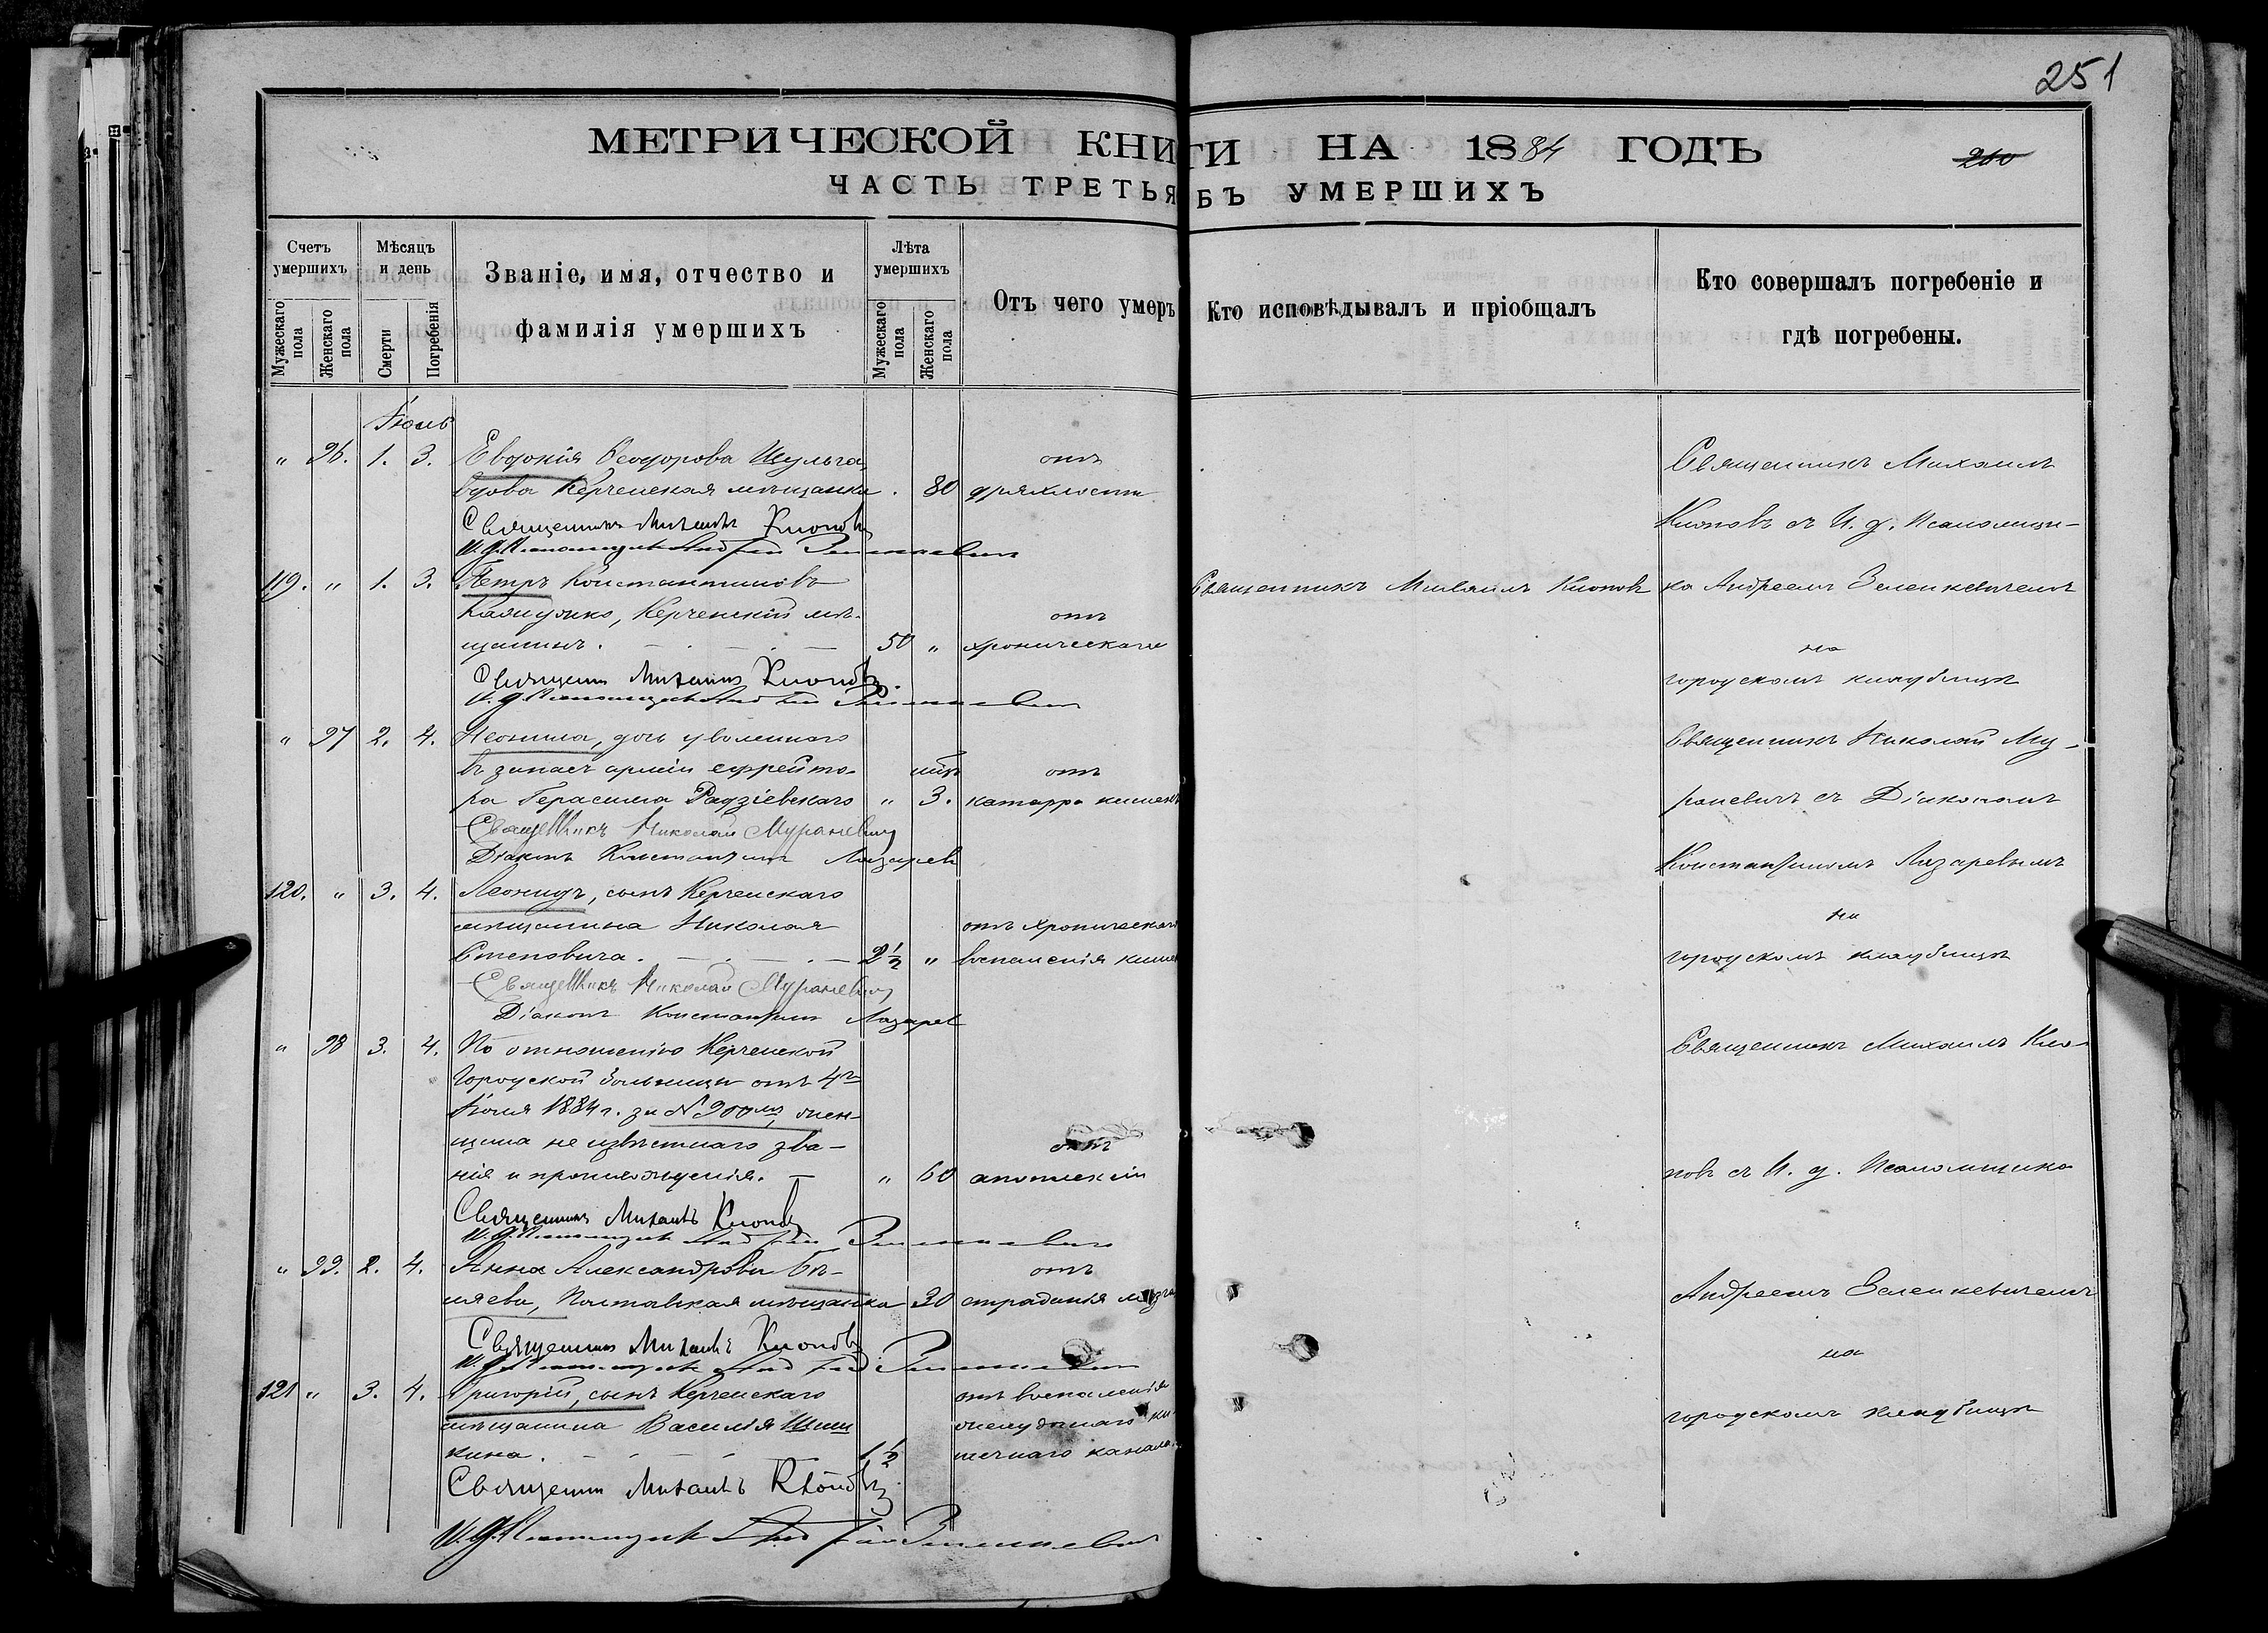 251
МЕТРИЧЕСКОЙ КНИГИ НА 1884 ГОДЪ
260
ЧАСТЬ ТРЕТЬЯ БЪ УМЕРШИХЪ
Счетъ умершихъ
Мужескаго пола
Женскаго пола
Мѣсяцъ и день
Смерти
Погребенія
Званіе, имя, отчество и
фамилія умершихъ
Лѣта умершихъ
Мужескаго пола
Женскаго пола
Отъ чего умеръ
Кто исповѣдывалъ и пріобщалъ
Кто совершалъ погребеніе и
гдѣ погребены.
Іюль
" 96. 1. 3. Евдокія Ѳеодорова Шульга, отъ
вдова Керченская мѣщанка. 80 дряхлости
Священникъ Михаилъ Клоповъ
И. д. Псаломщика Андрей Зеленкевичъ
119. " 1. 3. Петръ Константиновъ
Керченскій мѣ- отъ
щанинъ. 50 " хроническаго
Священникъ Михаилъ Клоповъ
И. д. Псаломщика Андрей Зеленкевичъ
" 97 2. 4. Неонила, дочь уволеннаго
въ запасъ арміи ефрейто- отъ
ра Герасима Радзіевскаго " 3. катарра кишекъ
Священникъ Николай Мураневичъ
Діаконъ Константинъ Лазаревъ
120. " 3. 4. Леонидъ, сынъ Керченскаго
мѣщанина Николая отъ хроническаго
Степовича. 2½ " воспаленія кише
Священникъ Николай Мураневичъ
Діаконъ Константинъ Лазаревъ
" 98 3. 4. По отношенію Керченской
Городской больницы отъ 4го
Іюля 1884 г. за № 900мъ, жен-
щина неизвѣстнаго зва- отъ
нія и происхожденія. — " 60 апоплексіи
Священникъ Михаилъ Клоповъ
И. д. Псаломщика Андрей Зеленкевичъ
" 99. 2. 4. Анна Александрова Бѣ- отъ
ляева, Полтавская мѣщанка 30 страданія
Священникъ Михаилъ Клоповъ
И. д. Псаломщика Андрей Зеленкевичъ
121 " 3. 4. Григорій, сынъ Керченскаго отъ воспаленія
мѣщанина Василія Шиш желудочнаго ки-
кина. 1½ шечнаго канала.
Священникъ Михаилъ Клоповъ
И. д. Псаломщика Андрей Зеленкевичъ
Священникъ Михаилъ Клоповъ
Священникъ Михаилъ
Клоповъ съ И. д. Псаломщи-
ка Андреемъ Зеленкевичемъ
на
городскомъ кладбищѣ
Священникъ Николай Му-
раневичъ съ Діакономъ
Константиномъ Лазаревымъ
на
городскомъ кладбищѣ
Священникъ Михаилъ Кло-
повъ съ И. д. Псаломщика
Андреемъ Зеленкевичемъ
на
городскомъ кладбищѣ